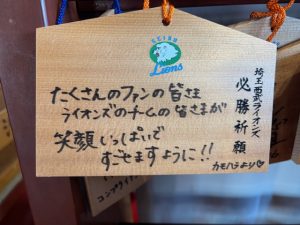 SEIBU
Lions
埼玉西武ライオンズ
必勝祈願
たくさんのファンの皆さま
ライオンズのチームの皆さまが
笑顔いっぱいで
すごせますように!!
カモハラより♡
コンプライ